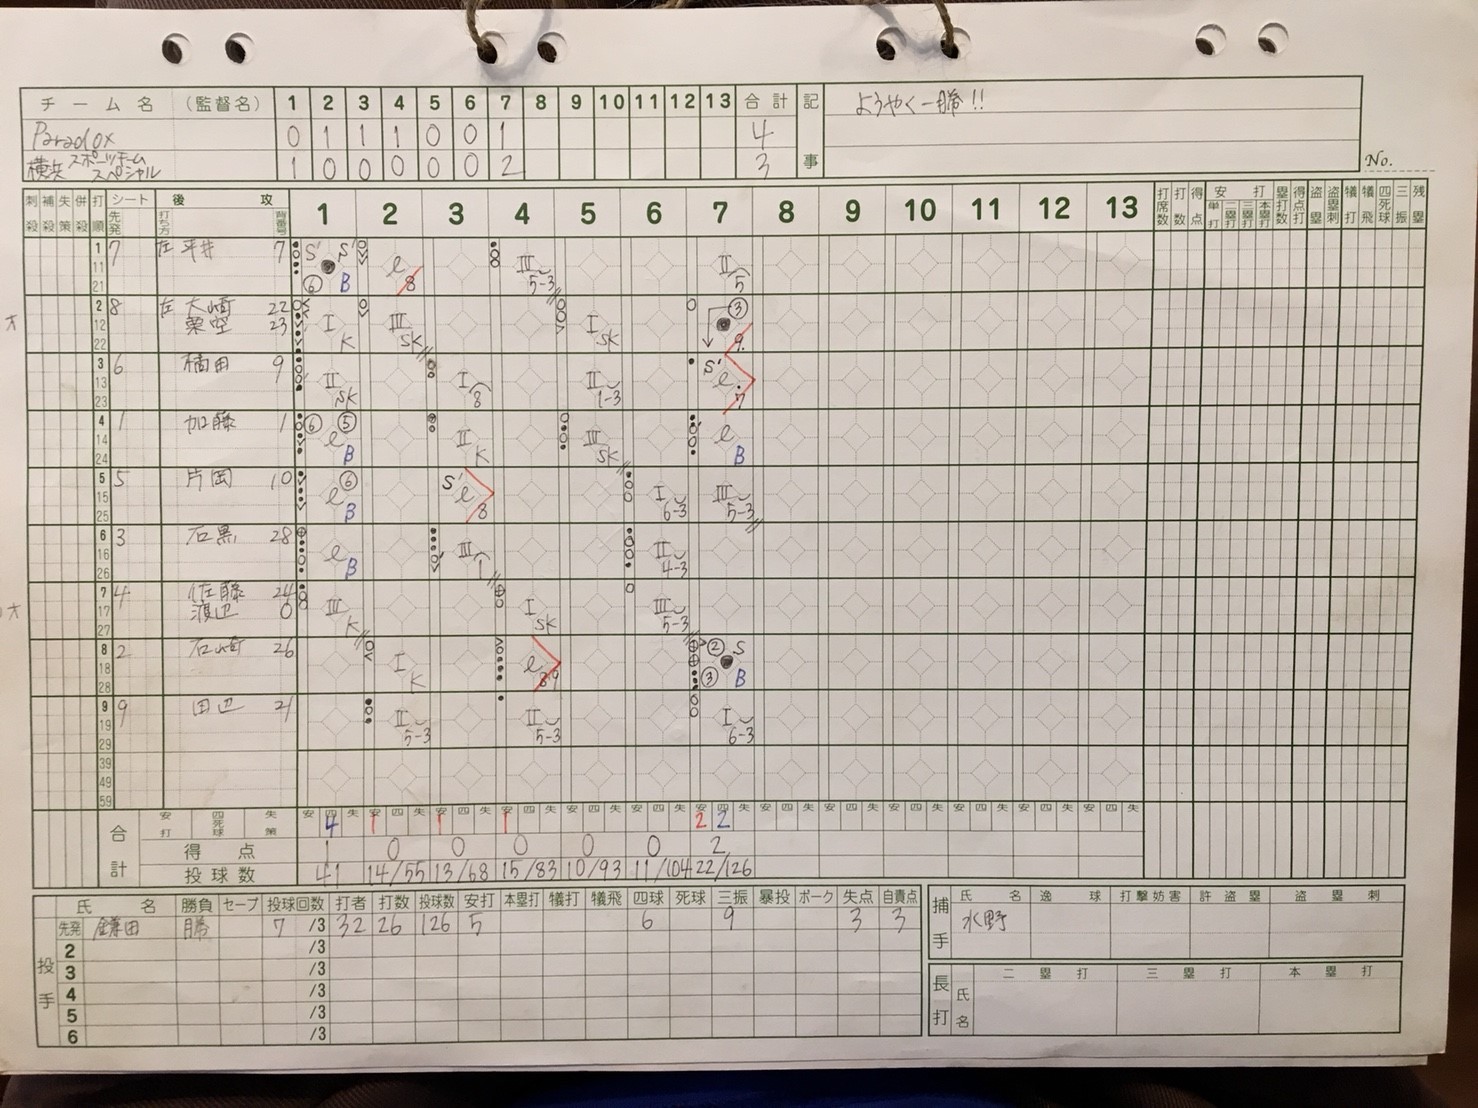 チーム名 (監督名) 1 2 3 4 5 6 7 8 9 10 11 12 13 合計 記事
Paradox 0 1 1 1 0 0 1 4
横浜スポーツチームスペシャル 1 0 0 0 0 0 2 3
ようやく一勝!!
No.
刺殺 補殺 失策 併殺 打順 シート 先発 後攻 打ち方 背番号 1 2 3 4 5 6 7 8 9 10 11 12 13 打席数 打数 得点 安打 単打 二塁打 三塁打 本塁打 塁打数 得点打 盗塁 盗塁刺 犠打 犠飛 四死球 三振 残塁
1 11 21 7 左 平井 7 S' S' ⑥ B l 8 III 5-3 II 5
2 12 22 8 左 大崎 22 栗空 23 I K III SK I SK ③ 9
3 13 23 6 橘田 9 II SK I 8 II 1-3 S' l 7
4 14 24 1 加藤 1 ⑥ ⑤ l B II K III SK l B
5 15 25 5 片岡 10 ⑥ l B S' l 8 I 6-3 III 5-3
6 16 26 3 石黒 28 l B III 1 II 4-3
7 17 27 4 佐藤 24 渡辺 0 III K I SK III 5-3
8 18 28 2 石崎 26 I K l 89 ② S ③ B
9 19 29 9 田辺 21 II 5-3 II 5-3 I 6-3
39
49
59
合計 安打 四死球 失策 安 四 失 4 1 1 1 2 2
得点 1 0 0 0 0 0 2
投球数 41 14/55 13/68 15/83 10/93 11/104 22/126
投手 氏名 勝負 セーブ 投球回数 打者 打数 投球数 安打 本塁打 犠打 犠飛 四球 死球 三振 暴投 ボーク 失点 自責点
先発 鎌田 勝 7 /3 32 26 126 5 6 9 3 3
2 /3
3 /3
4 /3
5 /3
6 /3
捕手 氏名 逸球 打撃妨害 許盗塁 盗塁刺
水野
長打 氏名 二塁打 三塁打 本塁打